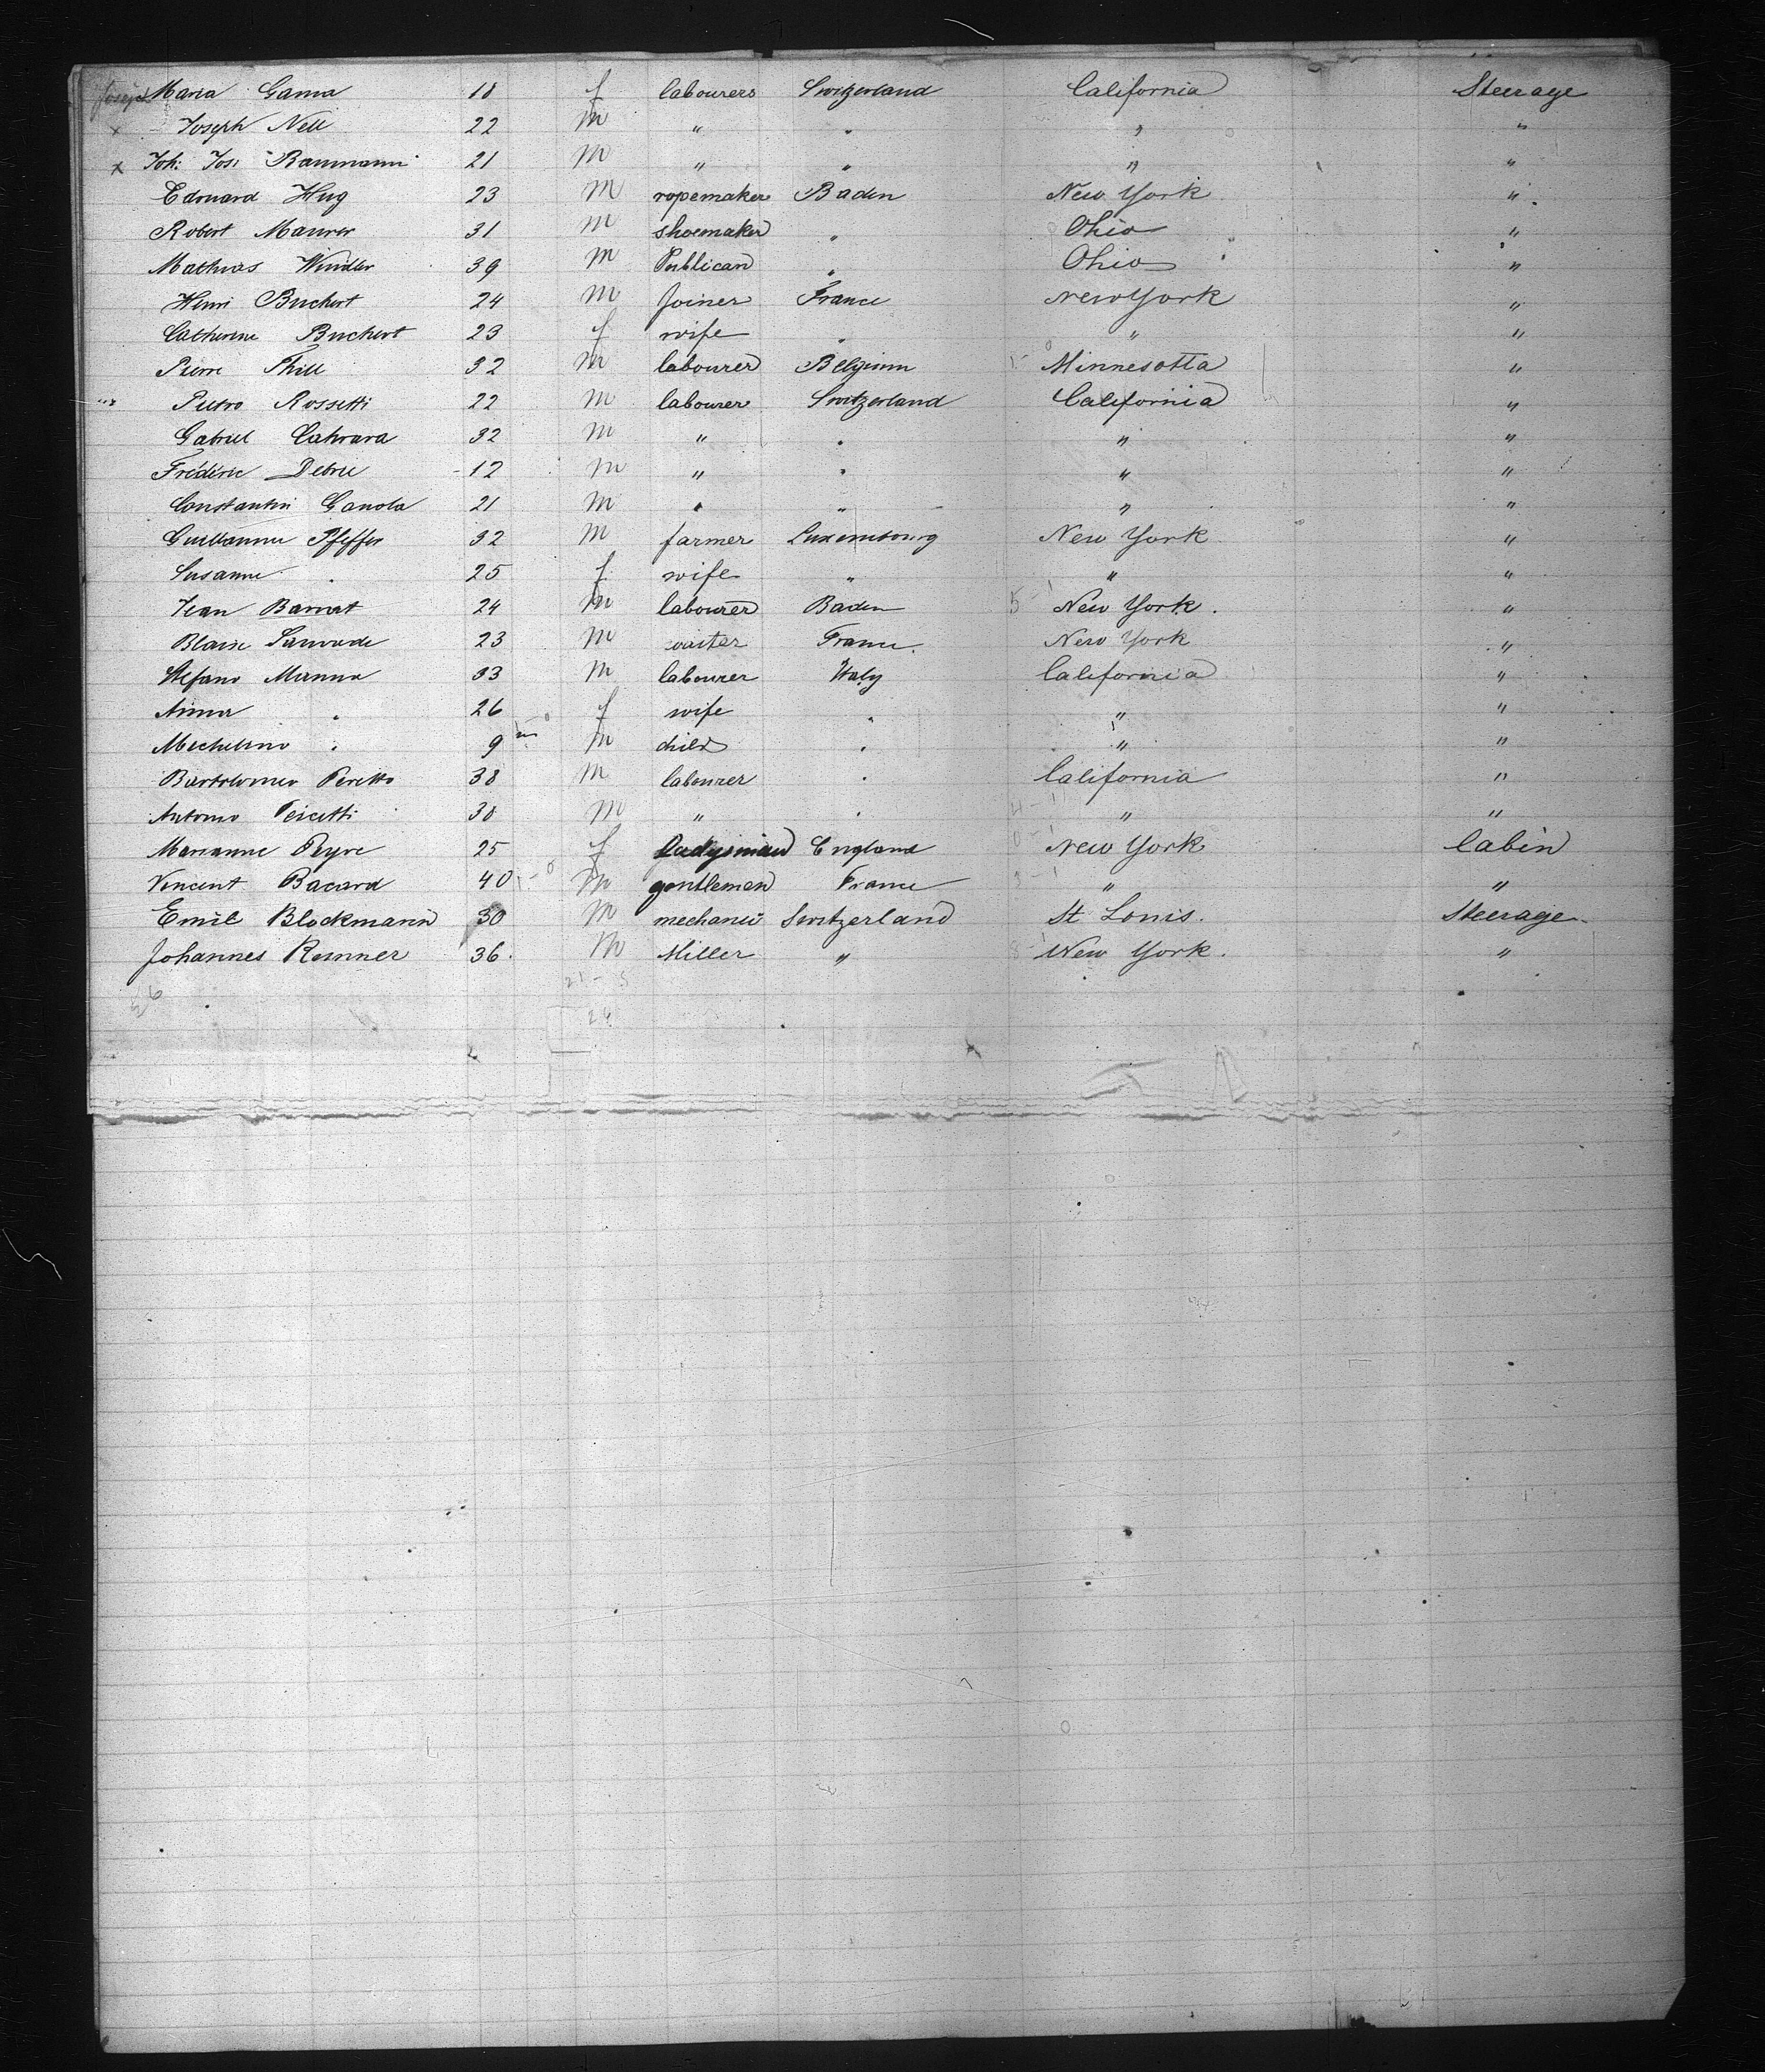 Maria Gama 18 f labourers Switzerland California Steerage
x Joseph Nell 22 m " " " "
x Joh. Jos. Baumann 21 m " " " "
Edouard Hug 23 m ropemaker Baden New York "
Robert Maurer 31 m shoemaker " Ohio "
Mathias Windler 39 m Publican " Ohio "
Henri Buchert 24 m Joiner France New York "
Catherine Buchert 23 f wife " " "
Pierre Thill 32 m labourer Belgium Minnesotta "
Pietro Rossetti 22 m labourer Switzerland California "
Gabriel 32 m " " " "
Frédéric Debrie 12 m " " " "
Constantin Ganola 21 m " " " "
Guillaume Pfeffer 32 m farmer Luxembourg New York "
Susanne " 25 f wife " " "
Jean 24 m labourer Baden New York. "
Blaise 23 m waiter France. New York "
Stefano Manna 33 m labourer Italy California "
Anna " 26 f wife " " "
" 9 m child " " "
Bartolomeo Peretto 38 m labourer " California "
Antonio 38 m " " " "
Marianne Peyre 25 f England New York Cabin
Vincent Bacard 40 m gentleman France " "
Emil Blockmann 30 m mechanic Switzerland St Louis. Steerage
Johannes Renner 36. m Miller " New York. "
56 21 - 5
26